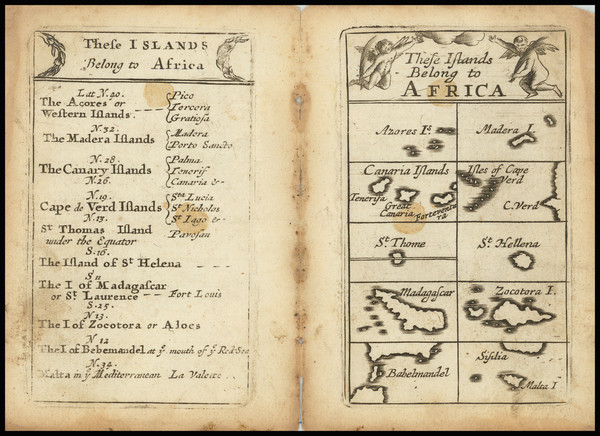 These ISLANDS
Belong to Africa
Lat N. 40.
The Açores or
Western Islands.
Pico
Tercera
Gratiosa
N. 32.
The Madera Islands
Madera
Porto Sancto
N. 28.
The Canary Islands
N. 26.
Palma
Tenerif
Canaria &-
N. 19.
Cape de Verd Islands
N. 13.
Sta Lucia
St Nicholas
St Iago &-
St Thomas Island
under the Equator
Pavosan
S. 16.
The Island of St Helena
S 11
The I of Madagascar
or St Laurence
Fort Louis
S. 25.
N. 13.
The I of Zocotora or
N 12
The I of Bebemandel at ye mouth of ye Red Sea
N. 34.
Malta in ye Mediterranean La Valette
These Islands
Belong to
AFRICA
Azores Is.
Madera I.
Canaria Islands
Tenerifa
Great
Canaria
Forteventu
ra
Isles of Cape
Verd
C. Verd
St. Thome
St. Hellena
Madagascar
Zocotora I.
Babelmandel
Sisilia
Malta I